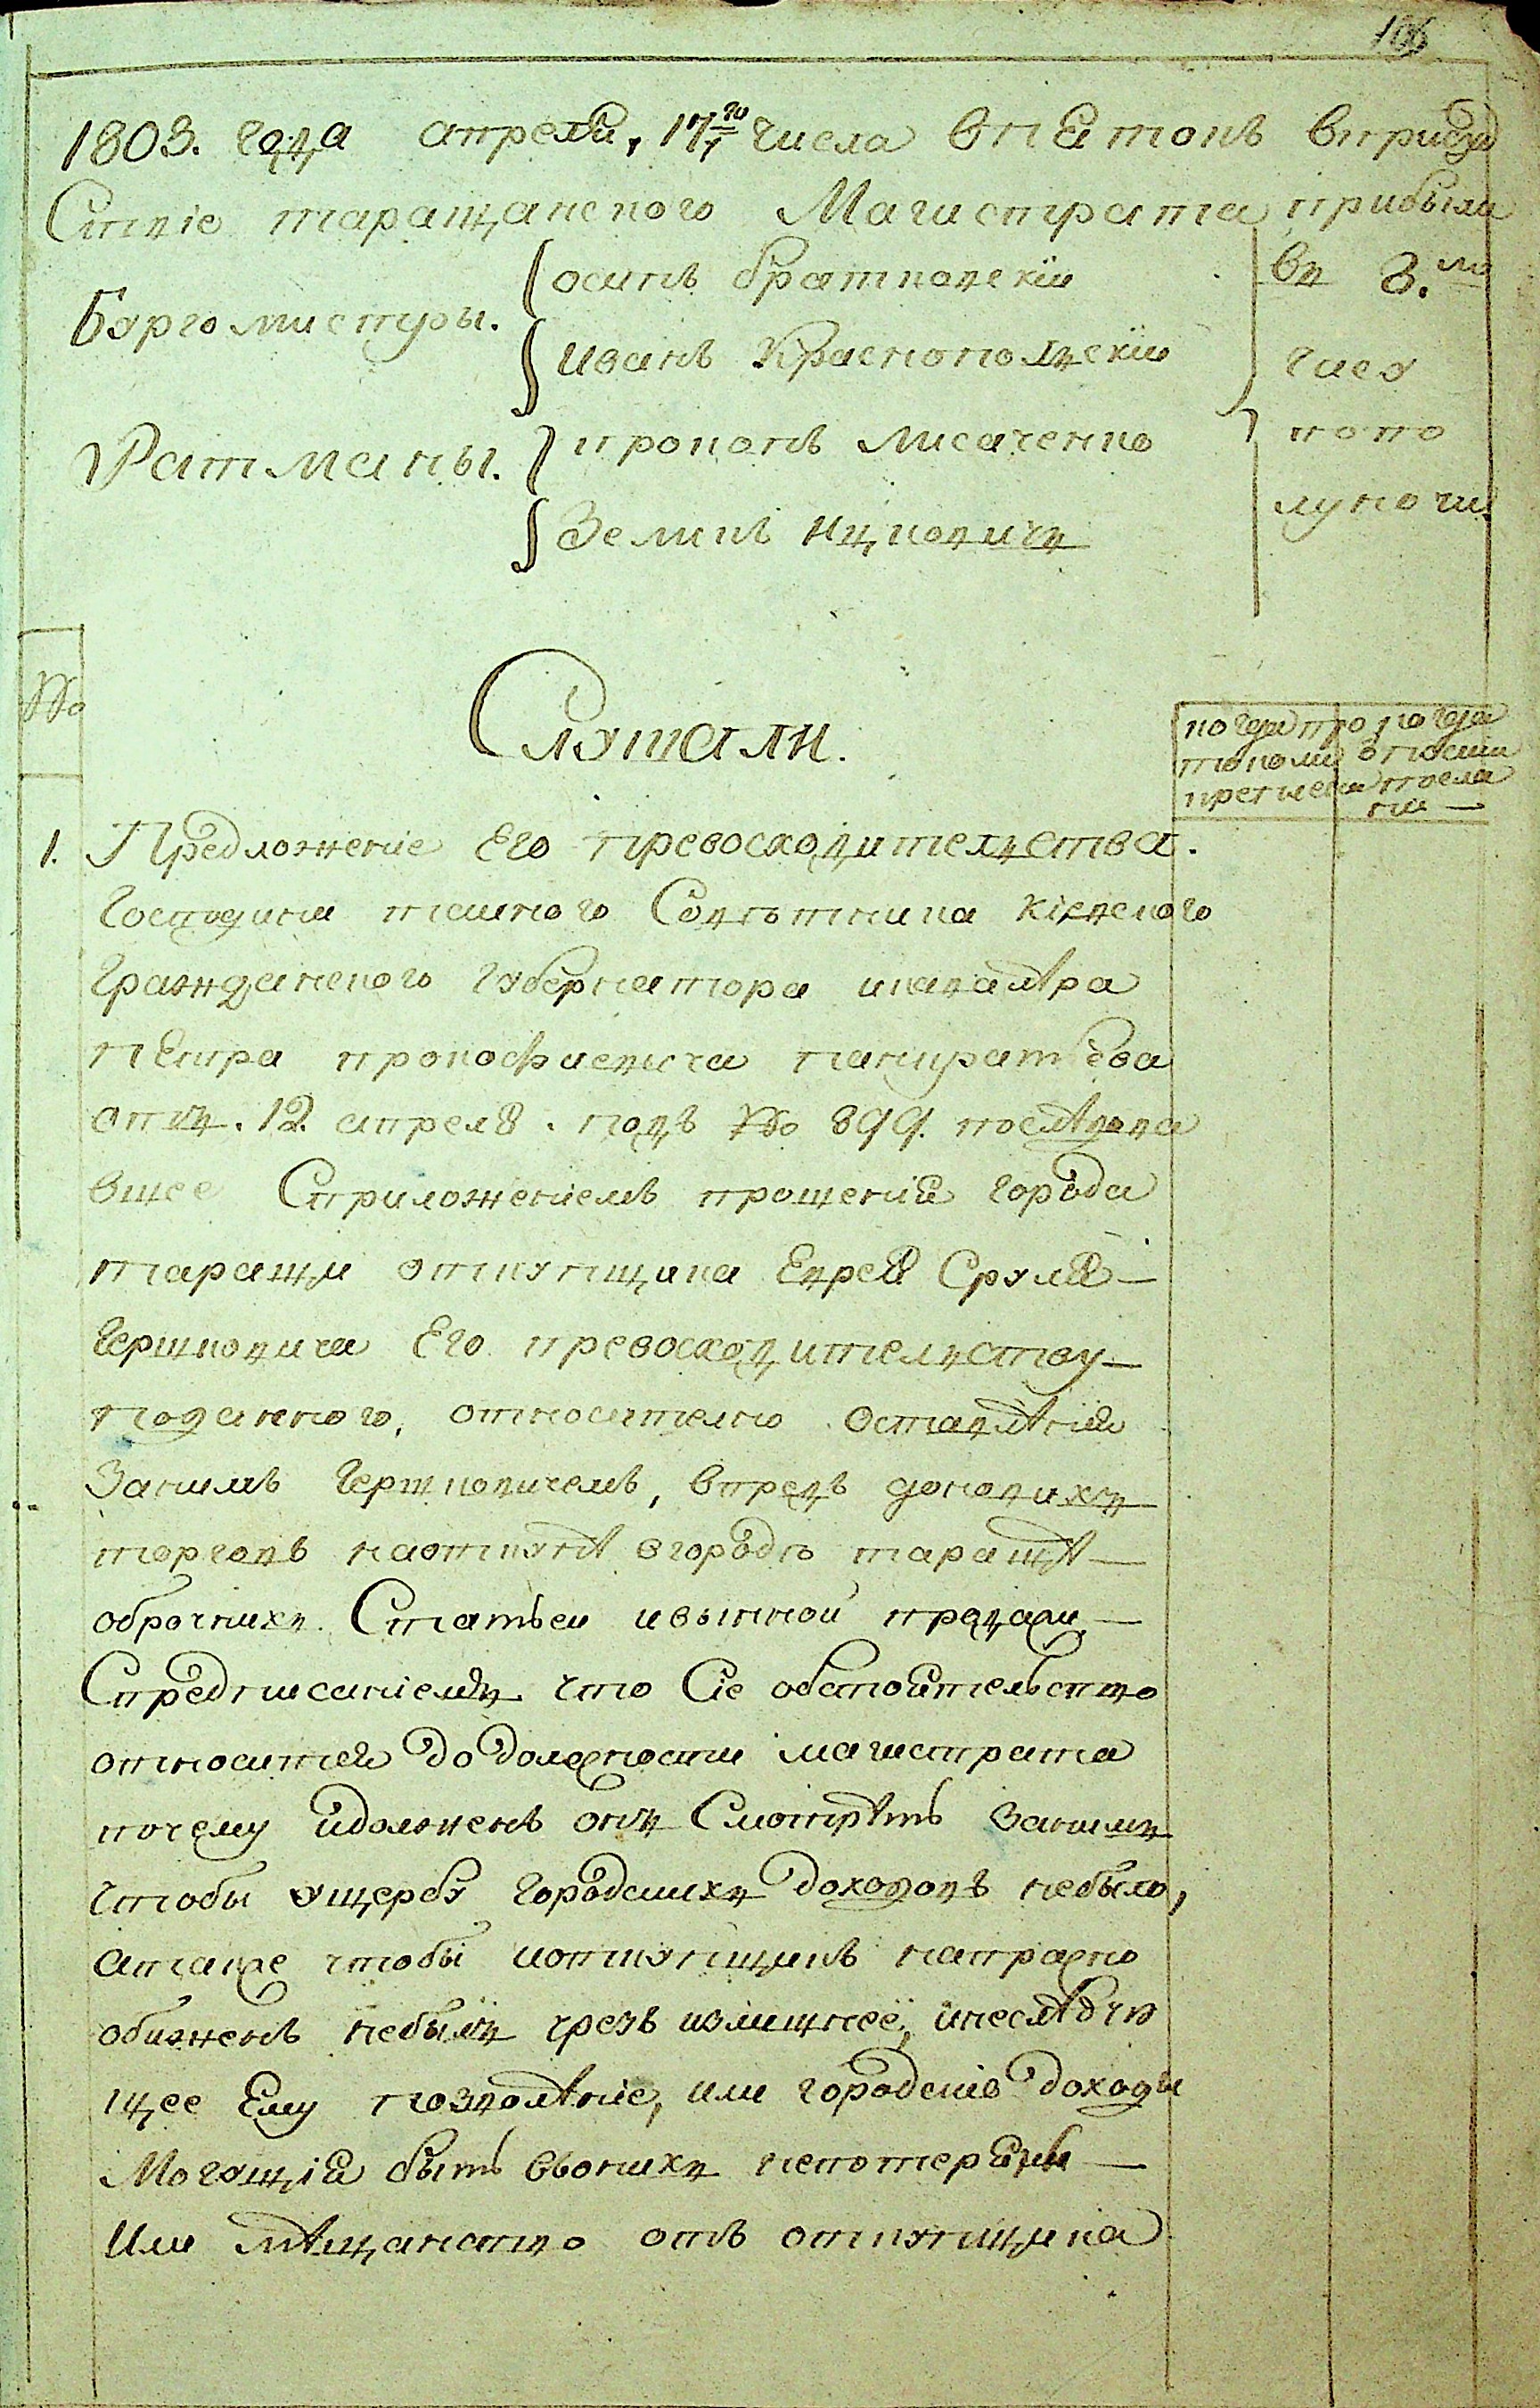 106
1803. года апреля, 17го числа впятокъ впрису
Ствіе таращанского Магистрата прибыли
Бургомистры.
осипъ братковскій
Иванъ Краснополскій
Ратманы.
прокопъ лисаченко
Зеликъ Ицковичъ
въ 8.мъ
часу
попо
луночи
№
Слушали.
1. Предложеніе Его превосходителства.
Господина тайного Советника кіевского
Гражданского губернатора икавалѣра
пЕтра прокофиевича панкратьева
отъ. 12. апреля. подъ № 899. послѣдова
вшее Сприложеніемъ прошенія города
таращи откупщика Еврея Сруля —
Гершковича Его превосходителству —
поданного, относително оставлѣнія
Занимъ Гершковичемъ, впредь доновихъ
торговъ наоткупѣ вгороде таращѣ —
оброчнихъ. Статьеи ивынной продажи —
Спредписаніемъ что Сіе обстоятельство
относится до должности магистрата
почему идолженъ онъ Смотрѣть Занимъ
чтобы ущербу городскихъ доходовъ небыло,
атакже чтобы иоткупщикъ напрасно
обиженъ небылъ чрезъ излишнее, инеслѣдую
щее Ему позволѣніе, или городскіе доходы
Могущія быть вьонихъ непотеряны —
Или мѣщанство отъ откупщика